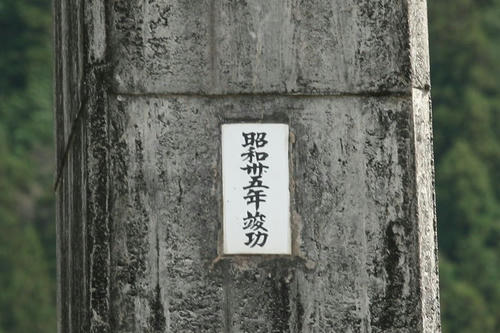 昭和卅五年竣功